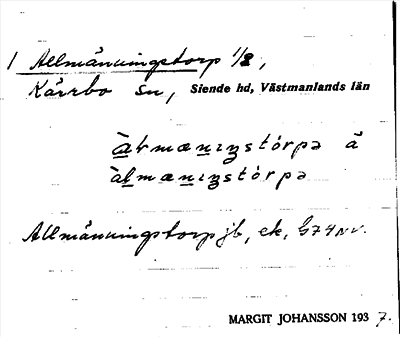 1 Allmänningstorp 1/2,
Kärrbo sn, Siende hd, Västmanlands län
àlmænıŋstórpə å
àlmænıŋstórpə
Allmänningstorp jb, ek, G74NV.
MARGIT JOHANSSON 1937.